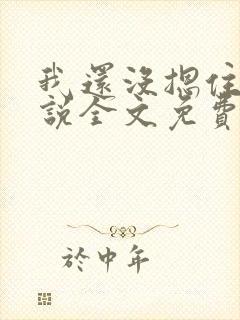 我還沒摁住
說全文免費
於中年